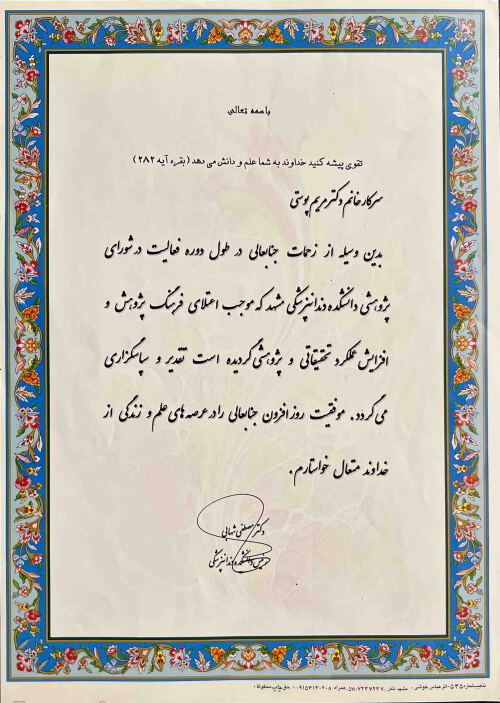 باسمه تعالی
تقوی پیشه کنید خداوند به شما علم و دانش می دهد (بقره آیه ۲۸۲)
سرکار خانم دکتر مریم پوستی
بدین وسیله از زحمات جنابعالی در طول دوره فعالیت در شورای
پژوهشی دانشکده دندانپزشکی مشهد که موجب اعتلای فرهنگ پژوهش و
افزایش عملکرد تحقیقاتی و پژوهشی گردیده است تقدیر و سپاسگزاری
می گردد. موفقیت روز افزون جنابعالی را در عرصه های علم و زندگی از
خداوند متعال خواستارم.
دکتر مصطفی شهابی
رئیس دانشکده دندانپزشکی
تذهیب شماره ۵۳۵ - اثر عباس خوشی - مشهد تلفن ۷۲۴۷۲۴۷-۰۵۱۱ همراه ۰۹۱۵۳۱۳۰۲۰۸ - حق چاپ محفوظ